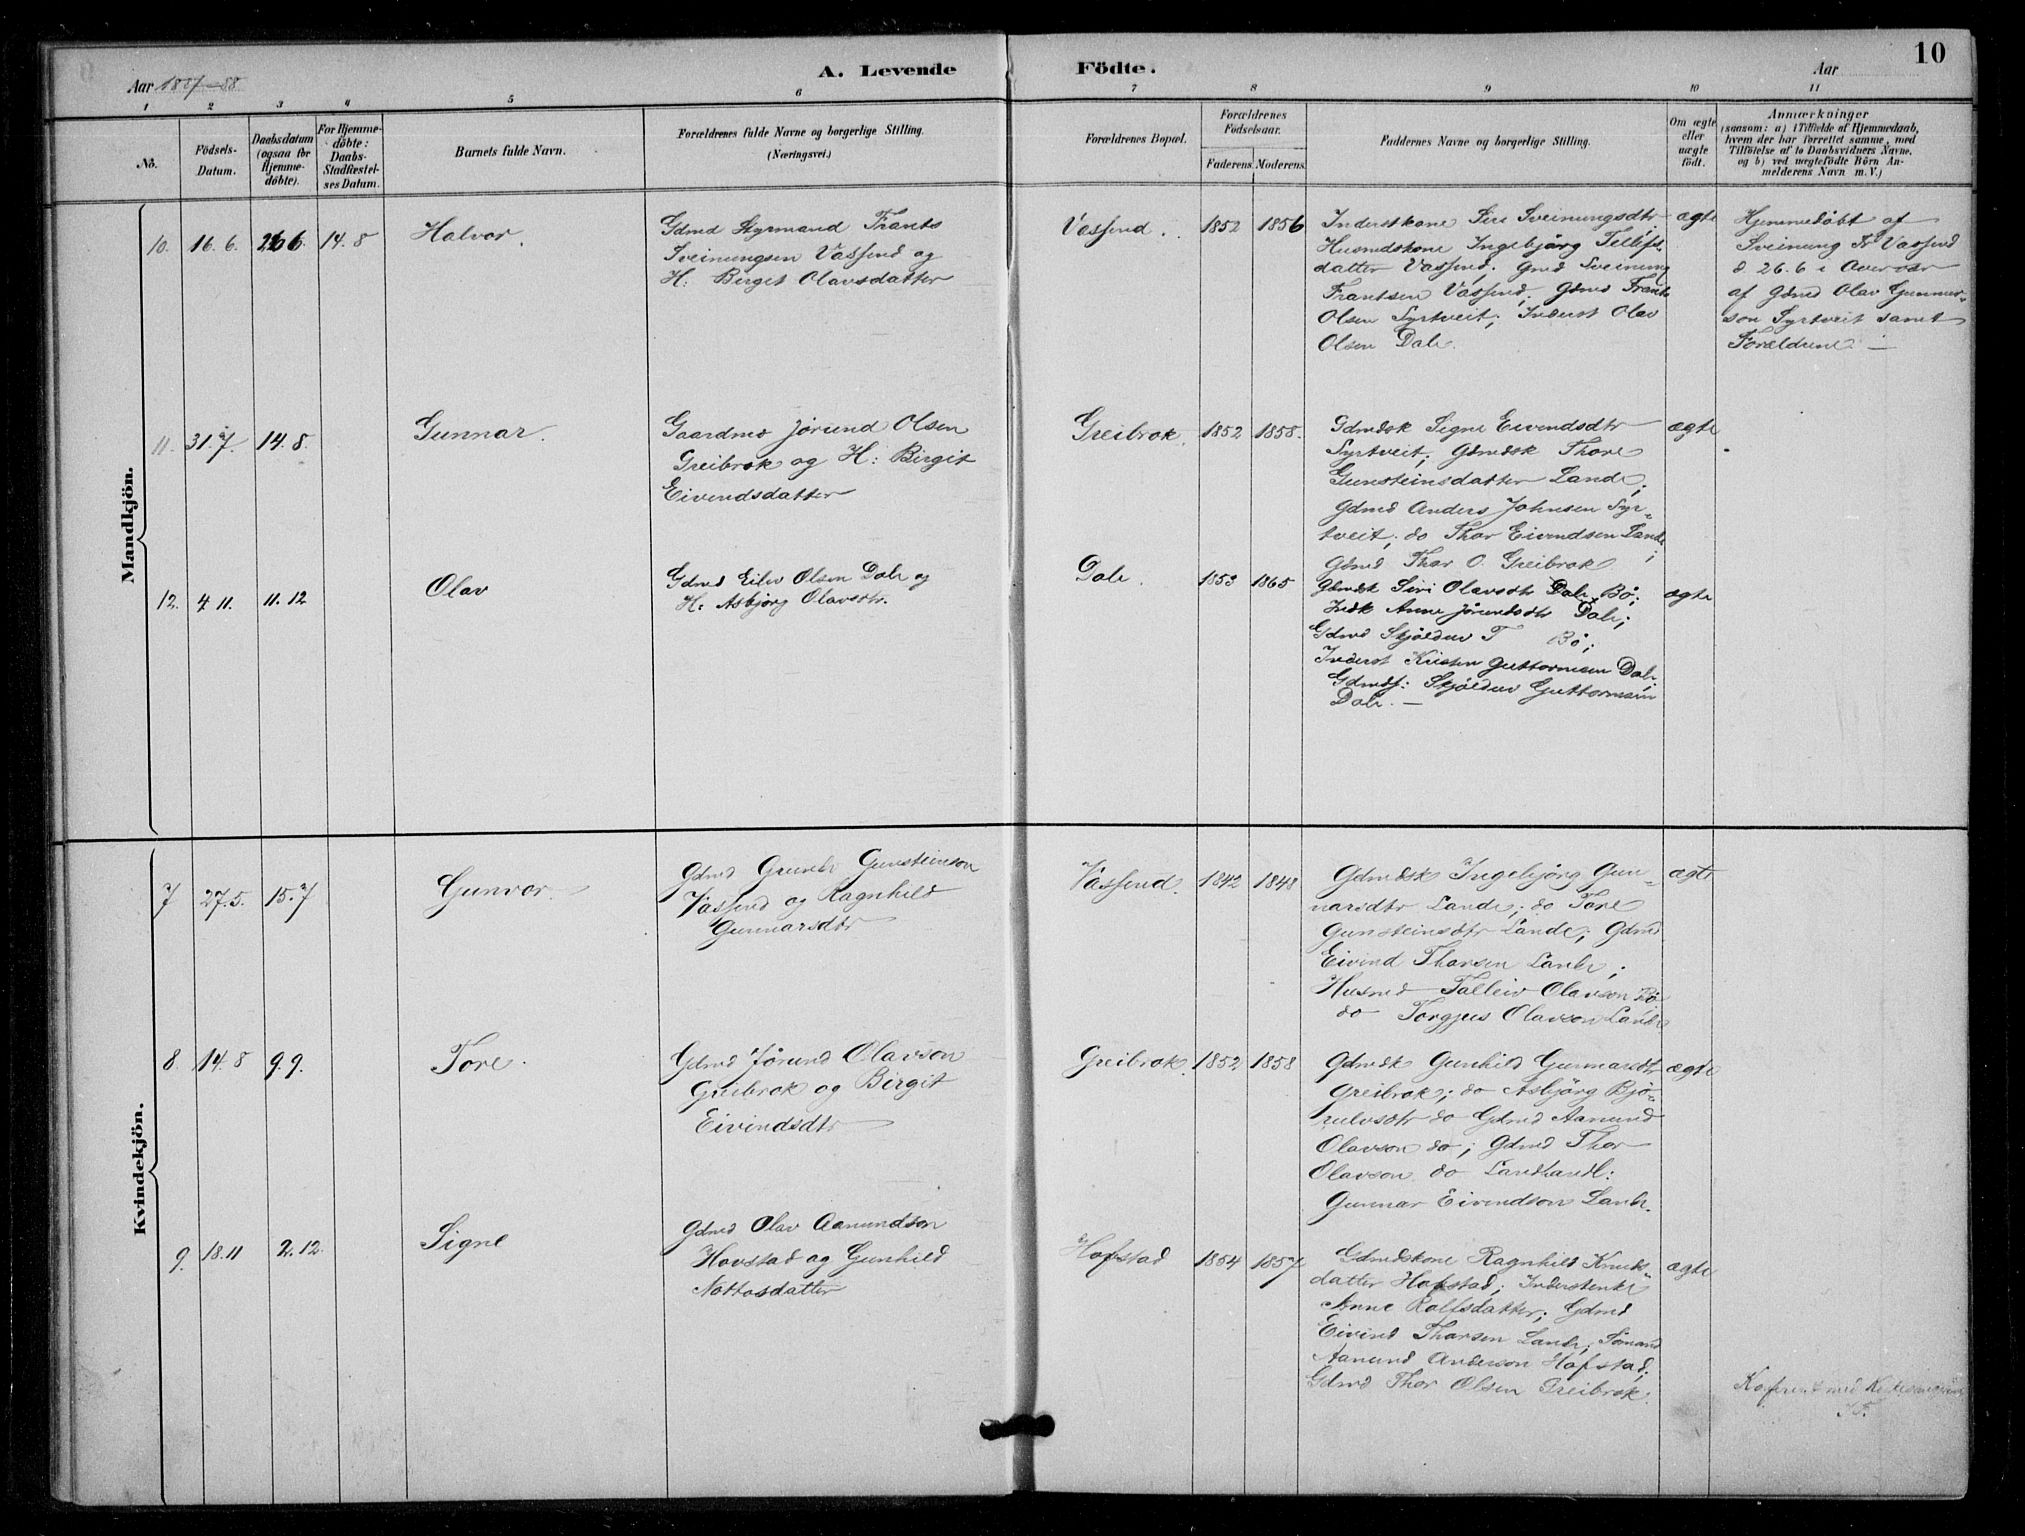 10
A. Levende Födte.
Aar 1887-88
Aar
1 2 3 4 5 6 7 8 9 10 11
No.
Födsels-Datum.
Daabsdatum (ogsaa for Hjemme-döbte).
For Hjemme-döbte: Daabs-Stadfæstel-ses Datum.
Barnets fulde Navn.
Forældrenes fulde Navne og borgerlige Stilling.
(Næringsvei.)
Forældrenes Bopæl.
Forældrenes Födselsaar.
Faderens. Moderens.
Faddernes Navne og borgerlige Stilling.
Om ægte eller uægte födt.
Anmærkninger
(saasom: a) i Tilfælde af Hjemmedaab,
hvem der har forrettet samme, med
Tilföielse af to Daabsvidners Navne,
og b) ved uægtefödte Börn An-
melderens Navn m. V.)
Mandkjön.
10. 16.6. 26.6. 14.8 Halvor.
Gdmd Styrmand Frants
Sveinungsen Vassend og
H: Birgit Olavsdatter
Vassend. 1852 1856
Inderstkone Siri Sveinungsdtr
Husmdskone Ingebjörg Tellefs-
datter Vassend; Gmd Sveinung
Frantsen Vassend; Gdmd Frants
Olsen Syrtveit; Inderst Olav
Olsen Dale.
ægte
Hjemmedöbt af
Sveinung Fr Vassend
d. 26.6 i Overvær
af Gdmd Olav Gunnar-
son Syrtveit samt
Forældrene. —
11. 31.7. 14.8. Gunnar.
Gaardmd Jörund Olsen
Greibrok og H: Birgit
Eivendsdatter
Greibrok. 1852 1858.
Gdmdsk Signe Eivendsdtr
Syrtveit; Gdmdsk Thore
Gunsteinsdatter Lande;
Gdmd Anders Johnsen Syr-
tveit; do Thor Eivendsen Lande;
Gdmd Thor O. Greibrok
ægte
12. 4.11. 11.12 Olav
Gdmd Eilev Olsen Dale og
H: Asbjörg Olavsdtr.
Dale. 1853 1865
Gdmdsk Siri Olavsdtr Dale, Bö;
Indk Anne Jörundsdtr Dale;
Gdmd Skjöldev T Bö;
Inderst Kristen Guttormsen Dale;
Gdmdf: Skjöldev Guttormsen
Dale. —
ægte
Kvindekjön.
7 27.5. 15.7 Gunvor.
Gdmd Gunstein Gunsteinson
Vassend og Ragnhild
Gunnarsdtr
Vassend. 1842 1848
Gdmdsk Ingebjörg Gun-
narsdtr Lande; do Tore
Gunsteinsdtr Lande; Gdmd
Eivind Thorsen Lande;
Husmd Talleiv Olavson Bö
do Torgjus Olavson Lande
ægte
8 14.8 9.9. Tore.
Gdmd Jörund Olavson
Greibrok og Birgit
Eivindsdtr
Greibrok. 1852 1858
Gdmdk Gunhild Gunnarsdtr
Greibrok; do Asbjörg Bjö-
rulvsdtr do Gdmd Aamund
Olavson do; Gdmd Thor
Olavson do Landhandl:
Gunnar Eivendson Lande.
ægte
9. 18.11 2.12. Signe
Gdmd Olav Aamundson
Hovstad og Gunhild
Nottosdatter
Hofstad 1854 1857
Gdmdskone Ragnhild Knuts-
datter Hofstad; Inderstenke
Anne Rolfsdatter; Gdmd
Eivind Thorsen Lande; Sömand
Aamund Anderson Hofstad;
Gdmd Thor Olsen Greibrok.
ægte